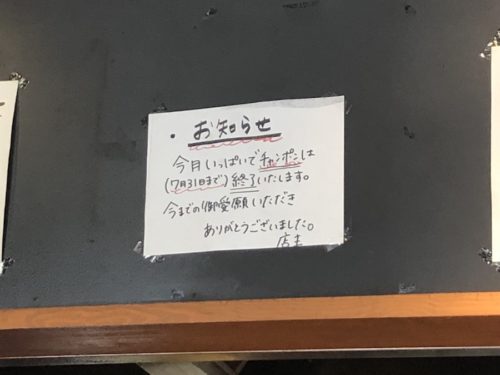 ・お知らせ
今月いっぱいでチャンポンは
(7月31日まで)終了いたします。
今までの御愛顧いただき
ありがとうございました。
店主